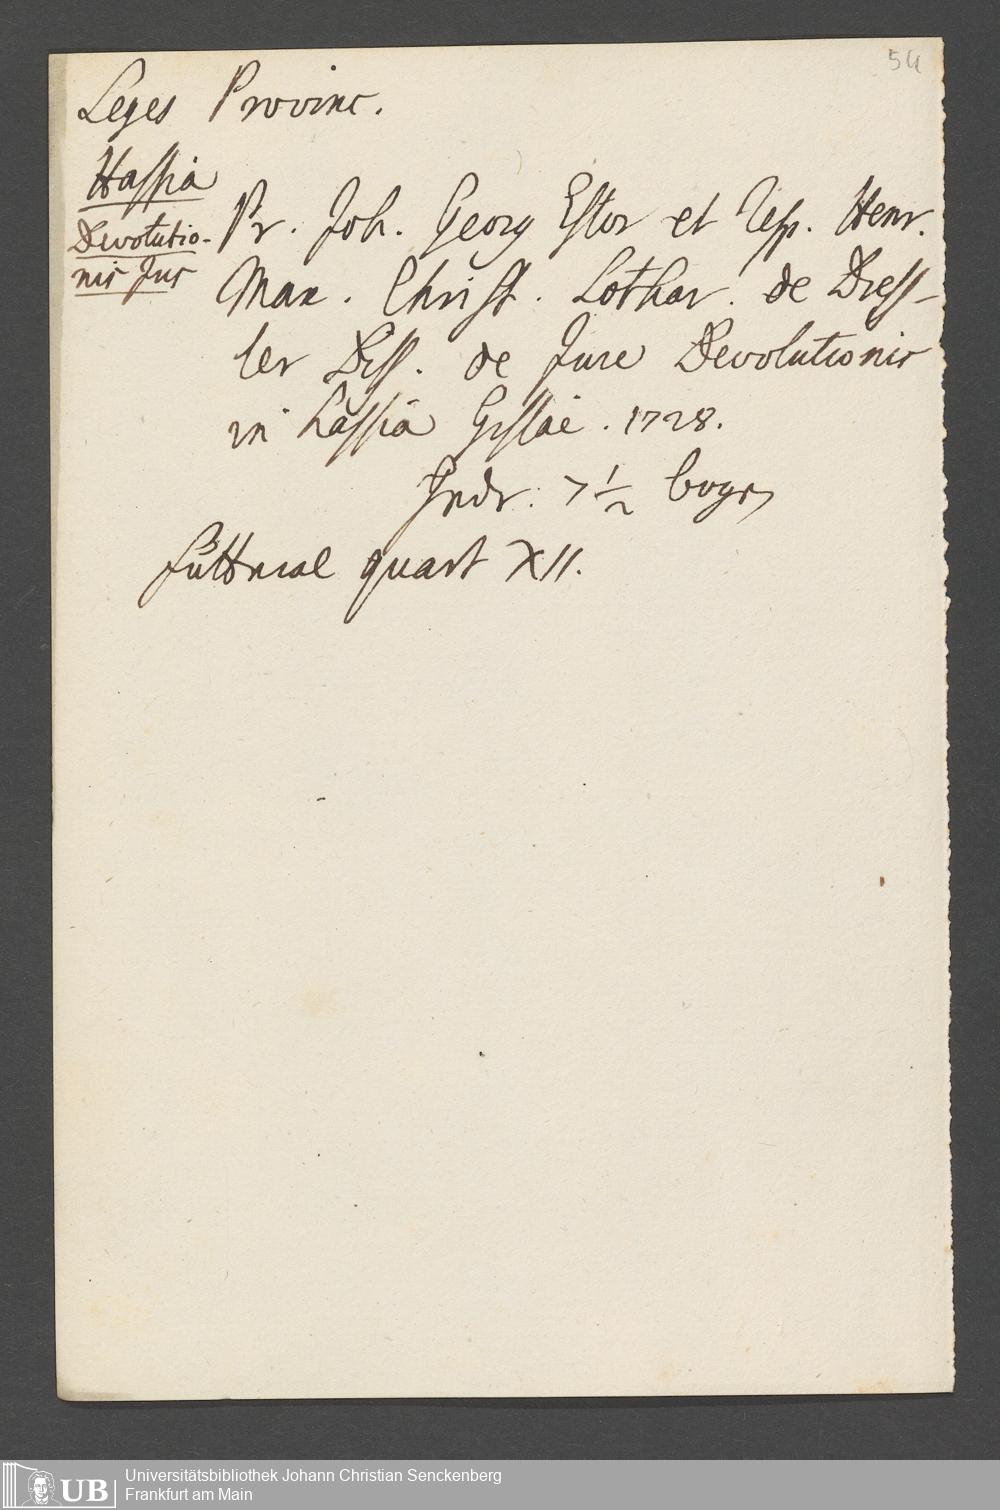 54
Leges Provinc.
Hassia
Devolutio-
nis Jus
Pr. Joh. Georg Estor et Resp. Henr.
Max. Christ. Lothar. de Dress-
ler Diss. de Jure Devolutionis
in Hassia Gissae. 1728.
7 1/2 bogen
quart XII.
UB
Universitätsbibliothek Johann Christian Senckenberg
Frankfurt am Main